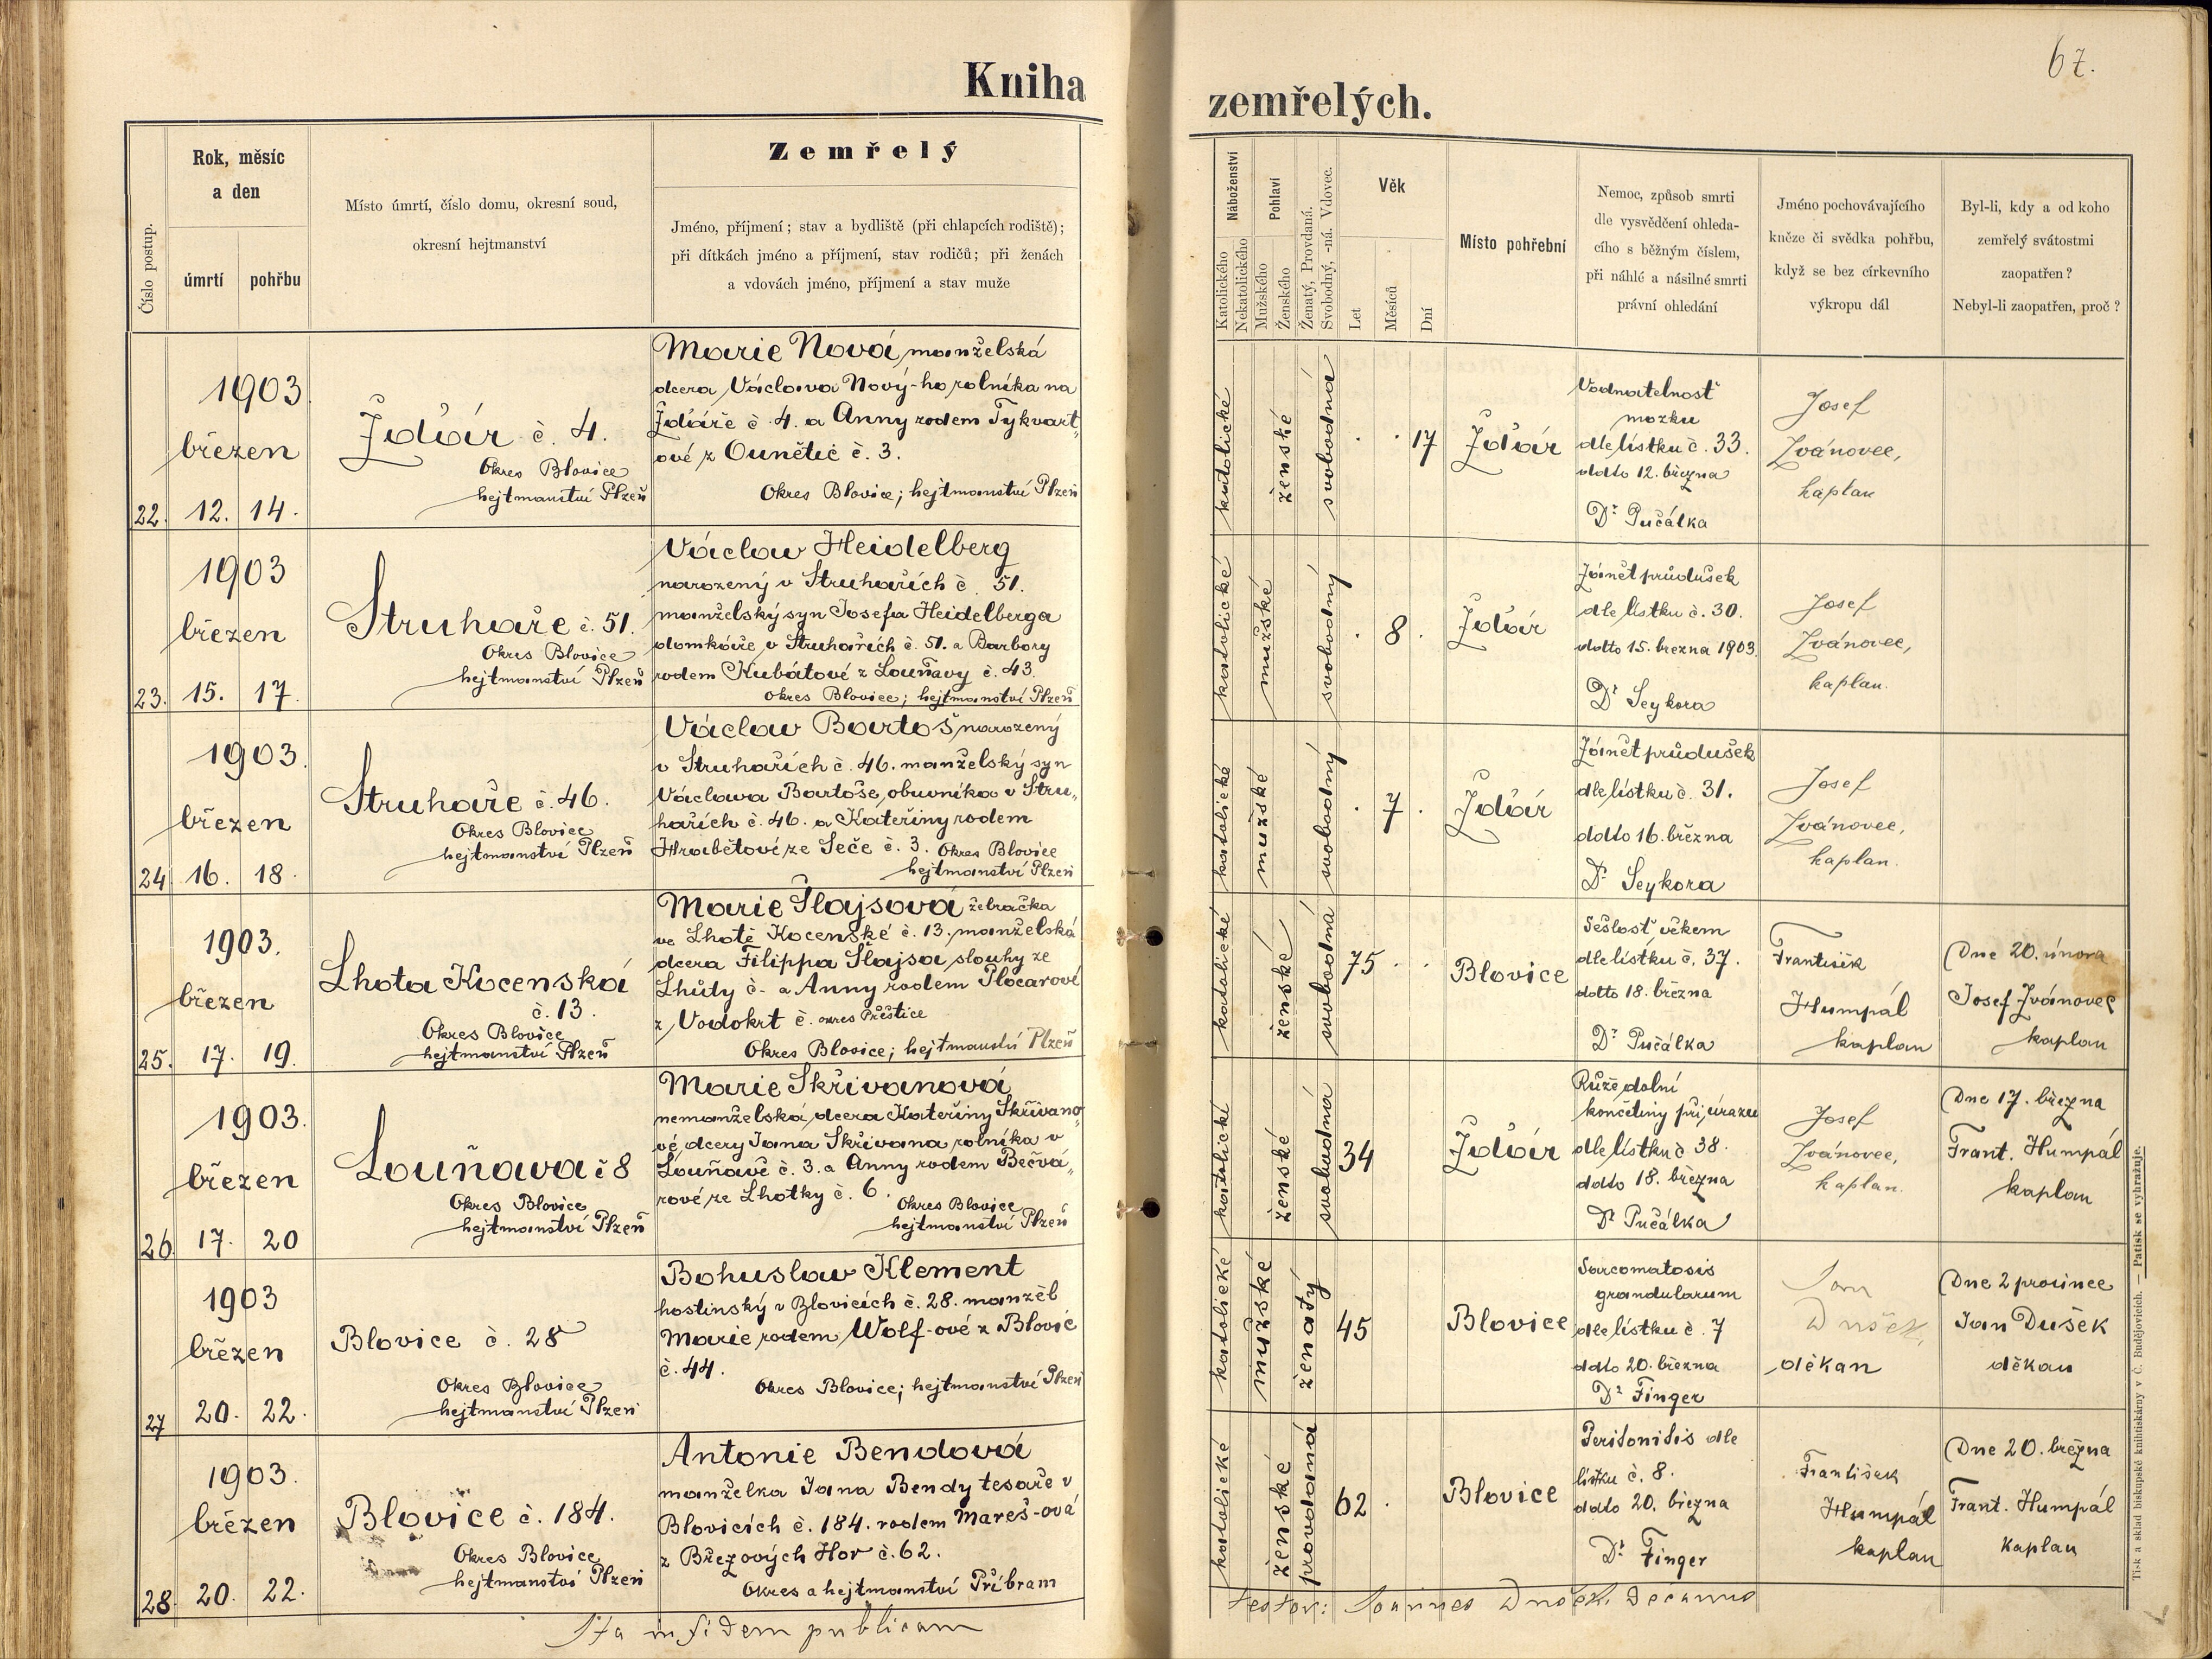 67.
Kniha zemřelých.
Číslo postup.
Rok, měsíc
a den
úmrtí
pohřbu
Místo úmrtí, číslo domu, okresní soud,
okresní hejtmanství
Zemřelý
Jméno, příjmení; stav a bydliště (při chlapcích rodiště);
při dítkách jméno a příjmení, stav rodičů; při ženách
a vdovách jméno, příjmení a stav muže
Náboženství
Katolického
Nekatolického
Pohlaví
Mužského
Ženského
Ženatý, Provdaná.
Svobodný, -ná. Vdovec.
Věk
Let
Měsíců
Dní
Místo pohřební
Nemoc, způsob smrti
dle vysvědčení ohleda-
cího s běžným číslem,
při náhlé a násilné smrti
právní ohledání
Jméno pochovávajícího
kněze či svědka pohřbu,
když se bez církevního
výkropu dál
Byl-li, kdy a od koho
zemřelý svátostmi
zaopatřen?
Nebyl-li zaopatřen, proč?
22.
1903.
březen
12. 14.
Ždár č. 4.
Okres Blovice
hejtmanství Plzeň
Marie Nová, manželská
dcera Václava Nový-ho rolníka na
Ždáře č. 4. a Anny rodem Tykvart„
ové z Ounětic č. 3.
Okres Blovice; hejtmanství Plzeň
katolické
ženské
svobodná
17
Ždár
Vodnatelnosť
mozku
dle lístku č. 33.
ddto 12. března
Dr Pučálka
Josef
Ivánovec,
kaplan
23.
1903
březen
15. 17.
Struhaře č. 51.
Okres Blovice
hejtmanství Plzeň
Václav Heidelberg
narozený v Struhařích č. 51.
manželský syn Josefa Heidelberga
domkáře v Struhařích č. 51. a Barbory
rodem Kubátové z Louňavy č. 43.
Okres Blovice; hejtmanství Plzeň
katolické
mužské
svobodný
8
Ždár
Zánět průdušek
dle lístku č. 30.
ddto 15. března 1903.
Dr Seykora
Josef
Ivánovec,
kaplan.
24
1903.
březen
16. 18.
Struhaře č. 46.
Okres Blovice
hejtmanství Plzeň
Václav Bartoš, narozený
v Struhařích č. 46. manželský syn
Václava Bartoše, obuvníka v Stru„
hařích č. 46. a Kateřiny rodem
Hrabětové ze Seče č. 3. Okres Blovice
hejtmanství Plzeň
katolické
mužské
svobodný
7
Ždár
Zánět průdušek
dle lístku č. 31.
ddto 16. března
Dr Seykora
Josef
Ivánovec,
kaplan.
25.
1903.
březen
17. 19.
Lhota Kocenská
č. 13.
Okres Blovice
hejtmanství Plzeň
Marie Šlajsová žebračka
ve Lhotě Kocenské č. 13. manželská
dcera Filippa Šlajsa, slouhy ze
Lhůty č - a Anny rodem Plocarové
z Vodokrt č. okres Přeštice
Okres Blovice; hejtmanství Plzeň
katolické
ženské
svobodná
75
Blovice
Sešlosť věkem
dle lístku č. 37.
ddto 18. března
Dr Pučálka
František
Humpál
kaplan
Dne 20. února
Josef Ivánovec
kaplan
26
1903.
březen
17. 20
Louňava č 8
Okres Blovice
hejtmanství Plzeň
Marie Skřivanová
nemanželská, dcera Kateřiny Skřivano
vé, dcery Jana Skřivana, rolníka v
Louňavě č. 3. a Anny rodem Bečvá„
rové ze Lhotky č. 6.
Okres Blovice
hejtmanství Plzeň
katolické
ženské
svobodná
34
Ždár
Růže dolní
končetiny při úrazu
dle lístku č 38.
ddto 18. března
Dr Pučálka
Josef
Ivánovec,
kaplan.
Dne 17. března
Frant. Humpál
kaplan
27
1903
březen
20. 22.
Blovice č. 28
Okres Blovice
hejtmanství Plzeň
Bohuslav Klement
hostinský v Blovicích č. 28. manžel
Marie rodem Wolf-ové z Blovic
č. 44.
Okres Blovice; hejtmanství Plzeň
katolické
mužské
ženatý
45
Blovice
Sarcomatosis
grandularum
dle lístku č. 7
ddto 20. března
Dr Finger
Jan
Dušek,
děkan
Dne 2 prosince
Jan Dušek
děkan
28.
1903.
březen
20. 22.
Blovice č. 184.
Okres Blovice
hejtmanství Plzeň
Antonie Bendová
manželka Jana Bendy tesaře v
Blovicích č. 184. rodem Mareš-ová
z Březových Hor č. 62.
Okres a hejtmanství Příbram
katolické
ženské
provdaná
62
Blovice
Peritonitis dle
lístku č. 8.
ddto 20. března
Dr Finger
František
Humpál
kaplan
Dne 20. března
Frant. Humpál
kaplan
Ita in fidem publicam
testor: Joannes Dušek, Decanus
Tisk a sklad biskupské knihtiskárny v Č. Budějovicích. — Patisk se vyhražuje.